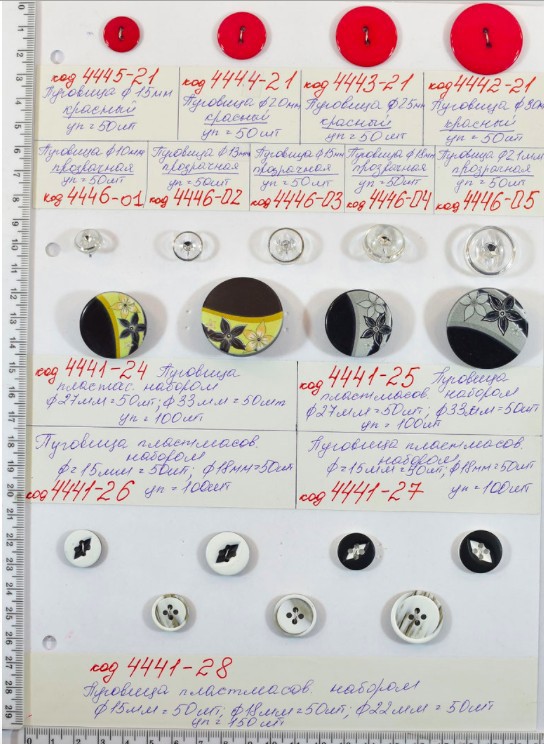 код 4445-21
Пуговица ф15мм
красный
уп = 50шт
код 4444-21
Пуговица ф20мм
красный
уп = 50шт
код 4443-21
Пуговица ф25мм
красный
уп = 50шт
код 4442-21
Пуговица ф30мм
красный
уп = 50шт
Пуговица ф10мм
прозрачная
уп = 50шт
код 4446-01
Пуговица ф13мм
прозрачная
уп = 50шт
код 4446-02
Пуговица ф15мм
прозрачная
уп = 50шт
код 4446-03
Пуговица ф18мм
прозрачная
уп = 50шт
код 4446-04
Пуговица ф21мм
прозрачная
уп = 50шт
код 4446-05
код 4441-24 Пуговица
пластмас. набором
ф27мм = 50шт; ф33мм = 50шт
уп = 100шт
код 4441-25 Пуговица
пластмасов. набором
ф27мм = 50шт; ф33мм = 50шт
уп = 100шт
Пуговица пластмасов.
набором
ф = 15мм = 50шт; ф18мм = 50шт
код 4441-26 уп = 100шт
Пуговица пластмасов.
набором
ф = 15мм = 50шт; ф18мм = 50шт
код 4441-27 уп = 100шт
код 4441-28
Пуговица пластмасов. набором
ф15мм = 50шт; ф18мм = 50шт; ф22мм = 50шт
уп = 150шт